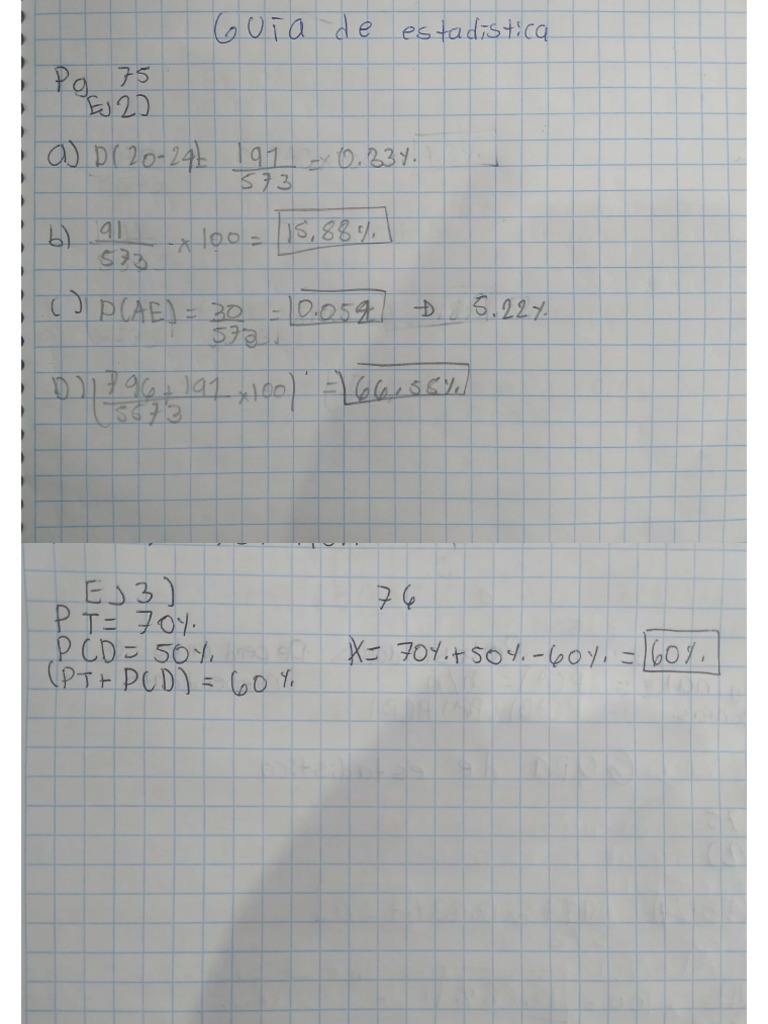 GUIa de estadística
Pg 75
EJ2)
a) P(20-29)= 191/573 = 0.33%.
b) 91/573 x 100 = 15.88%.
C) P(AE) = 30/573 = 0.052 → 5.22%
D) (796 + 191/5573 x100) = 66.55%
EJ3) 76
PT= 70%.
PCD = 50%. X= 70%+50%-60%. = 60%.
(PT+PCD) = 60%.